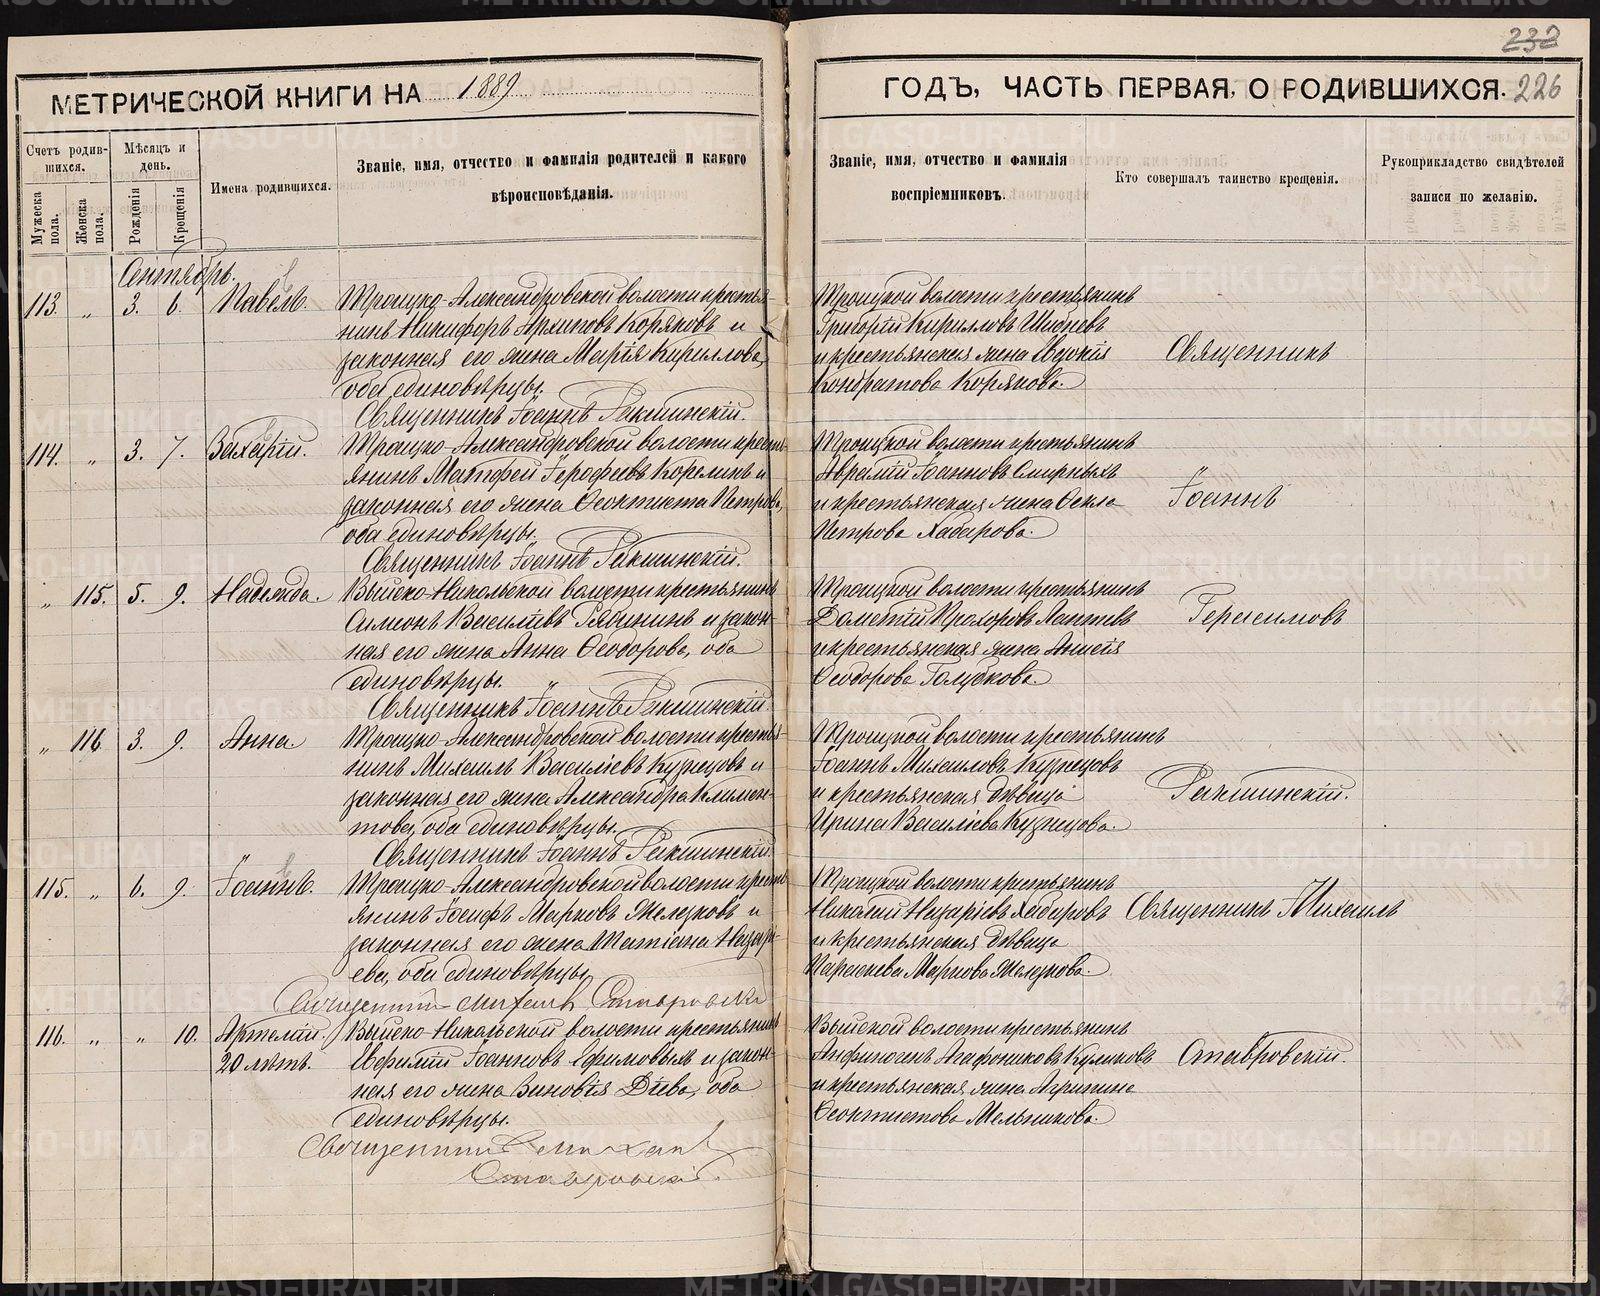 232
МЕТРИЧЕСКОЙ КНИГИ НА 1889
ГОДЪ, ЧАСТЬ ПЕРВАЯ, О РОДИВШИХСЯ. 226
Счетъ родив-
шихся.
Мужеска
пола.
Женска
пола.
Мѣсяцъ и
день.
Рожденія
Крещенія
Имена родившихся.
Званіе, имя, отчество и фамилія родителей и какого
вѣроисповѣданія.
Званіе, имя, отчество и фамилія
воспріемниковъ.
Кто совершалъ таинство крещенія.
Рукоприкладство свидѣтелей
записи по желанію.
Сентябрь.
113. „ 3. 6. Павелъ.
Троицко-Александровской волости крестья-
нинъ Никифоръ Архиповъ Коряковъ и
законная его жена Марія Кириллова,
оба единовѣрцы.
Священникъ Іоаннъ Ракшинскій.
Троицкой волости крестьянинъ
Григорій Кирилловъ Шибневъ
и крестьянская жена Евдокія
Кондратова Корякова.
Священникъ
114. „ 3. 7. Захарій.
Троицко-Александровской волости кресть-
янинъ Матфей Іерофеевъ Корелинъ и
законная его жена Феоктиста Петрова,
оба единовѣрцы.
Священникъ Іоаннъ Ракшинскій.
Троицкой волости крестьянинъ
Аврамій Іоанновъ Смирныхъ
и крестьянская жена Фекла
Петрова Хабарова.
Іоаннъ
„ 115. 5. 9. Надежда.
Выйско-Никольской волости крестьянинъ
Симонъ Васильевъ Рябининъ и закон-
ная его жена Анна Феодорова, оба
единовѣрцы.
Священникъ Іоаннъ Ракшинскій.
Троицкой волости крестьянинъ
Дометій Прохоровъ Лаптевъ
и крестьянская жена Анисія
Феодорова Голубкова.
Герасимовъ
„ 116 3. 9. Анна.
Троицко-Александровской волости крестья-
нинъ Михаилъ Василіевъ Кузнецовъ и
законная его жена Александра Климен-
това, оба единовѣрцы.
Священникъ Іоаннъ Ракшинскій.
Троицкой волости крестьянинъ
Іоаннъ Михаиловъ Кузнецовъ
и крестьянская дѣвица
Ирина Василіева Кузнецова.
Ракшинскій.
115. „ 6. 9. Іоаннъ.
Троицко-Александровской волости кресть-
янинъ Іосифъ Марковъ Железковъ и
законная его жена Татіана Назарі-
ева, оба единовѣрцы
Священникъ Михаилъ Ставровскій
Троицкой волости крестьянинъ
Николай Назаріевъ Хабаровъ
и крестьянская дѣвица
Параскева Маркова Железкова.
Священникъ Михаилъ
116. „ „ 10. Артемій.
20 лѣтъ.
Выйско-Никольской волости крестьянинъ
Евфимій Іоанновъ Ефимовыхъ и закон-
ная его жена Зиновія Діева, оба
единовѣрцы.
Священникъ Михаилъ
Ставровскій.
Выйской волости крестьянинъ
Анфиногенъ Агафониковъ Куликовъ
и крестьянская жена Агрипина
Феоктистова Мельникова.
Ставровскій.